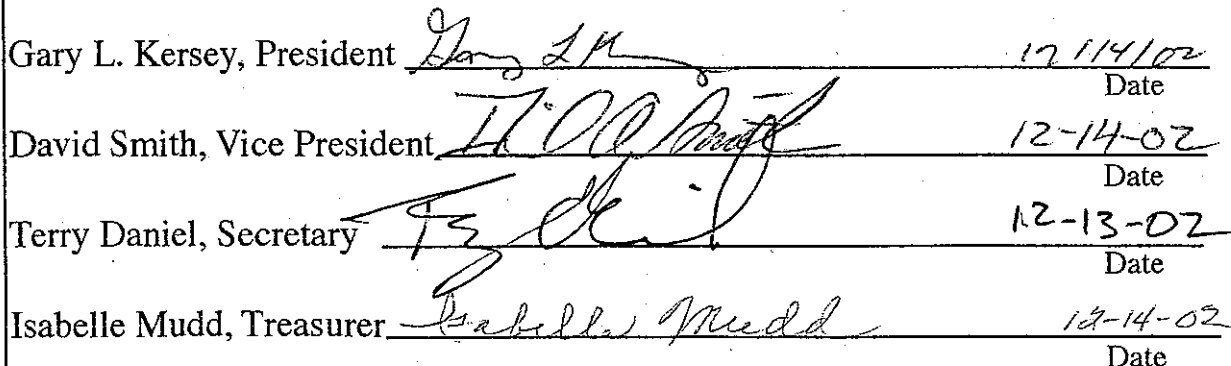 Gary L. Kersey, President Gary L K 12/14/02
Date
David Smith, Vice President Smith 12-14-02
Date
Terry Daniel, Secretary Terry Daniel 12-13-02
Date
Isabelle Mudd, Treasurer Isabelle Mudd 12-14-02
Date